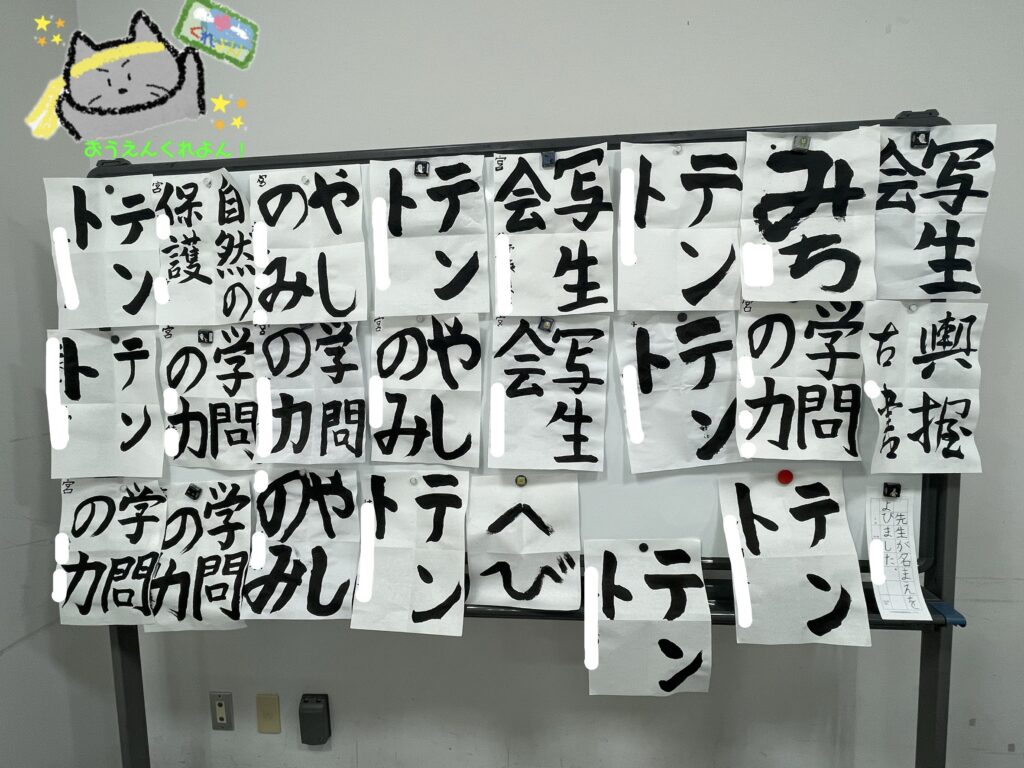 おうえんくれよん！
テン
ト
自然の
保護
やし
のみ
テン
ト
写生
会
テン
ト
みち
写生
会
テン
ト
学問
の力
学問
の力
やし
のみ
写生
会
テン
ト
学問
の力
輿握
古書
学問
の力
学問
の力
やし
のみ
テン
ト
へび
テン
ト
テン
ト
先生が名まえを
よびました。